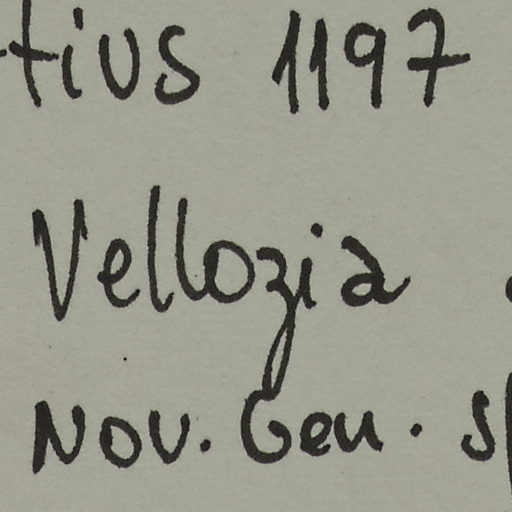 tius 1197
Vellozia
Nov. Gen. s